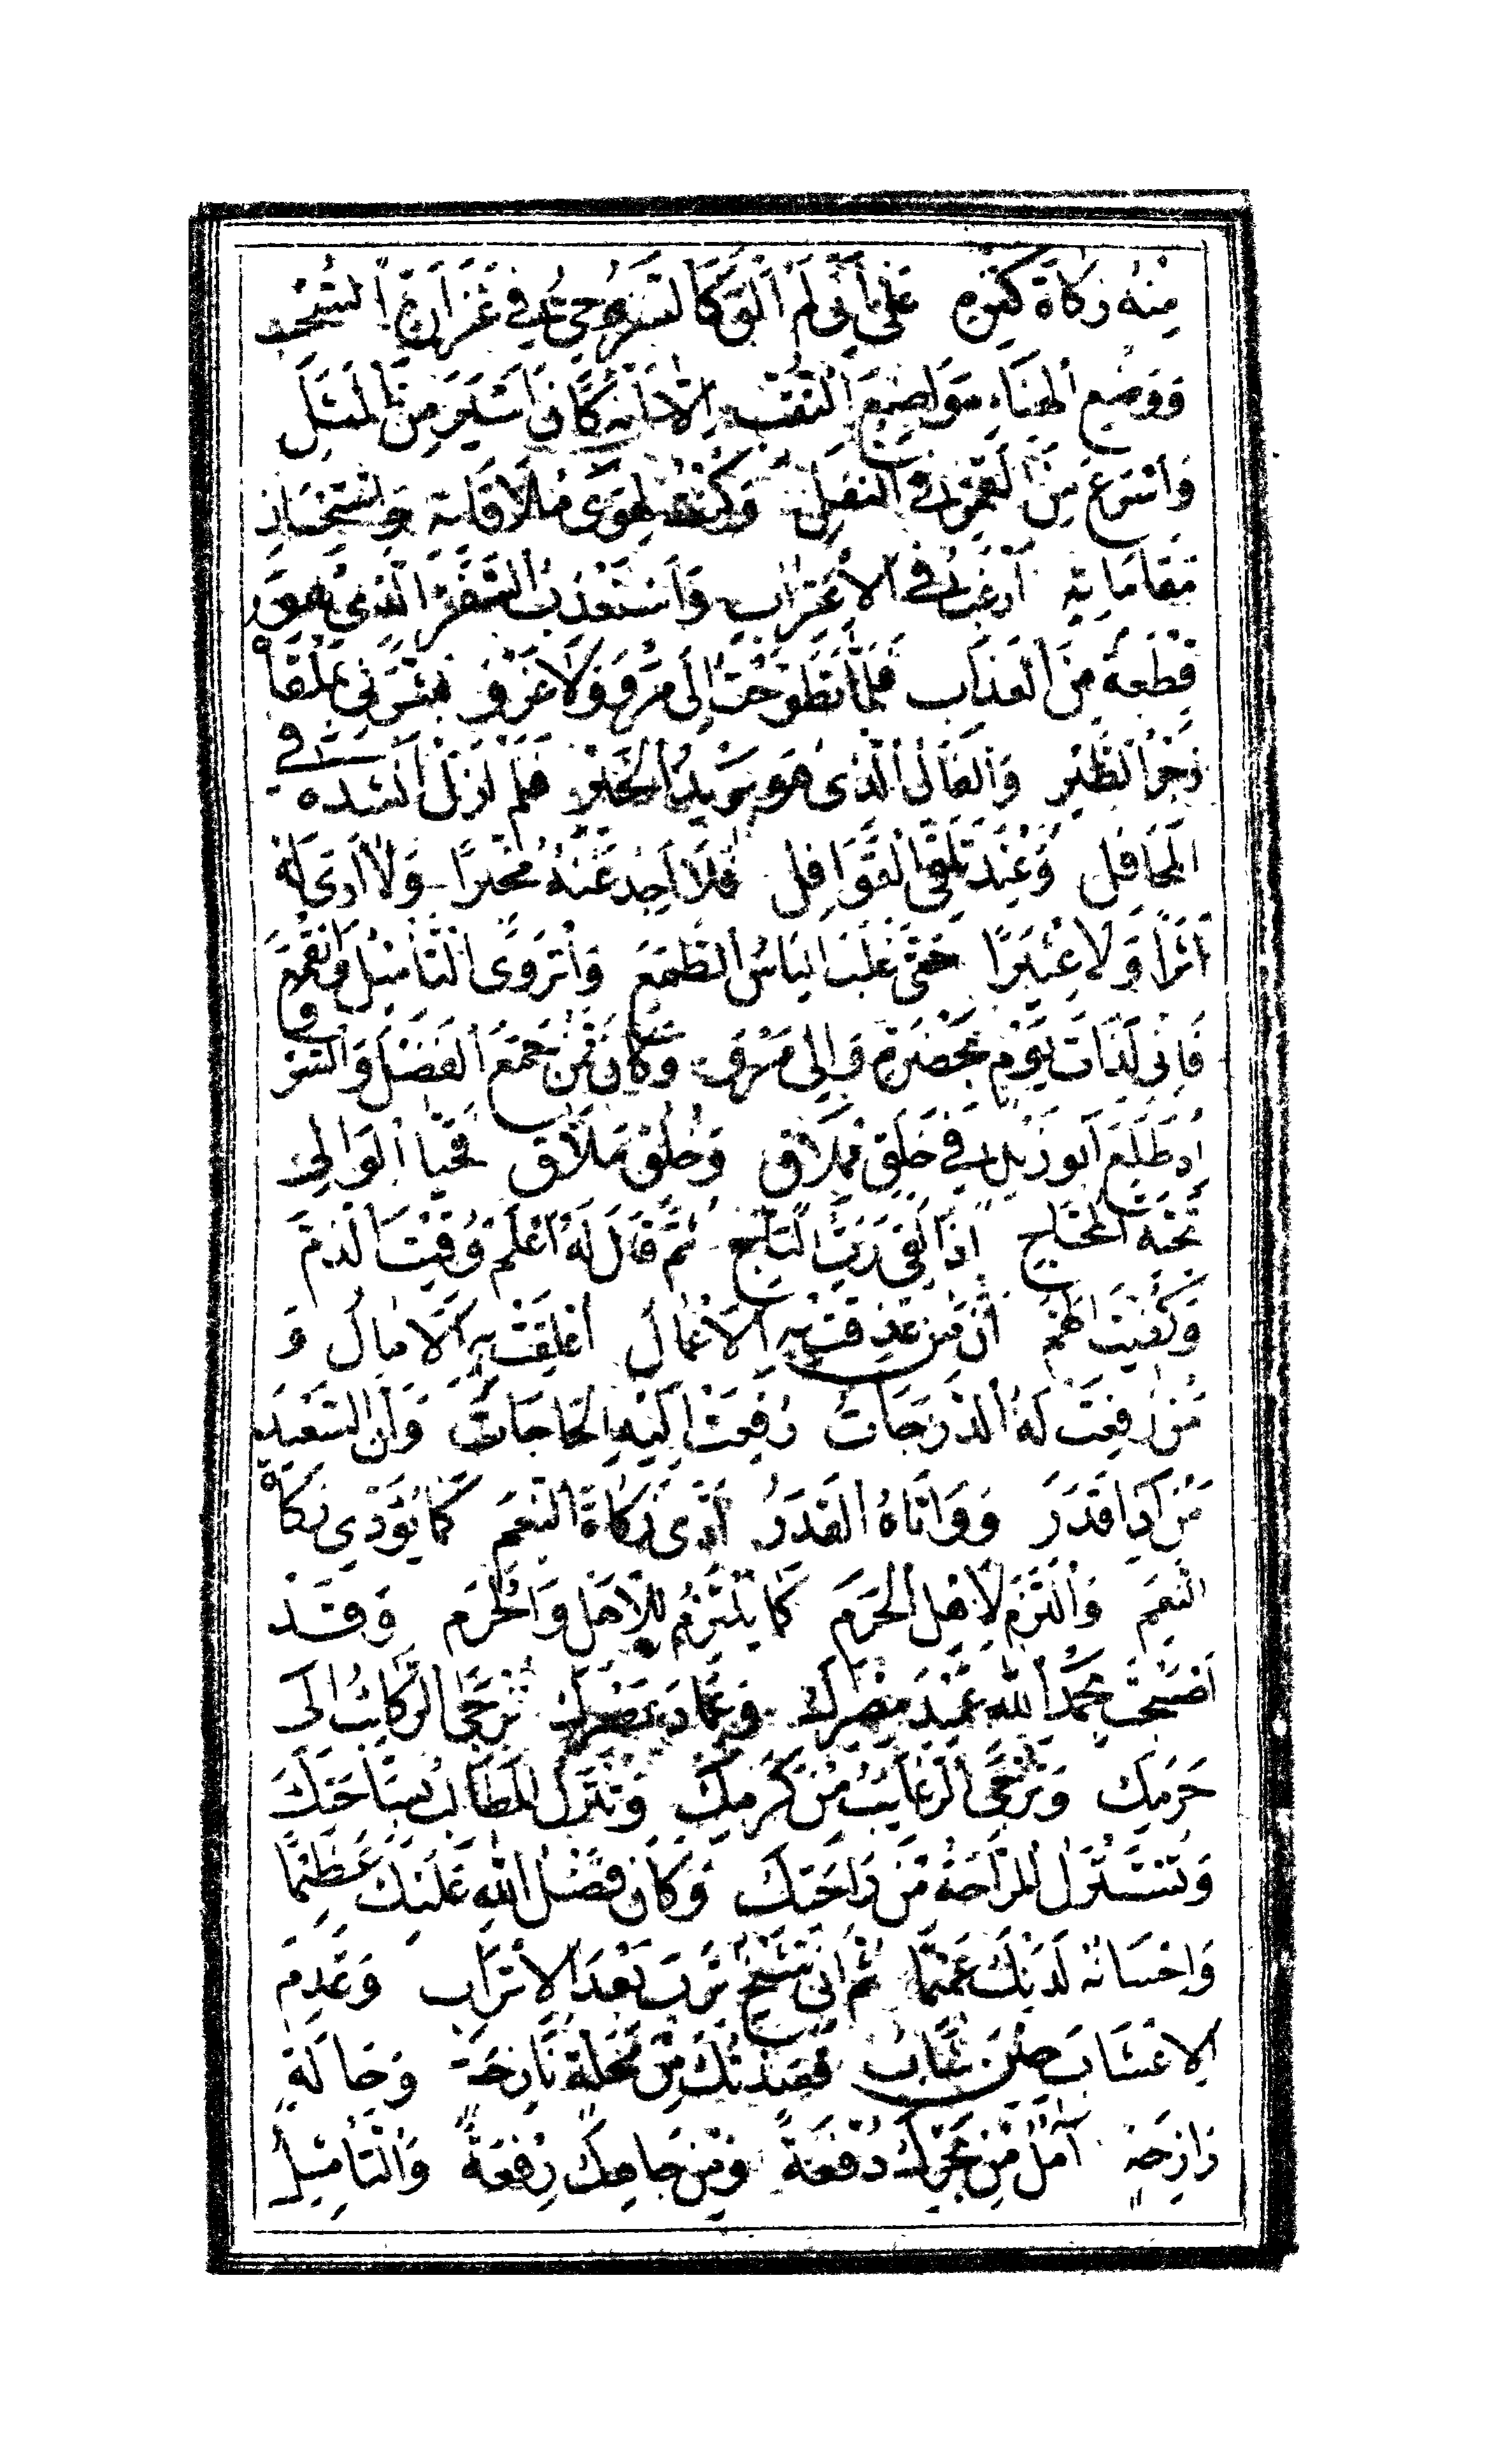 مِنْهُ زَكَاةَ كَنْزِهِ عَلَى أَنِّي لَمْ أَلْقَ كَالسَّرُوجِيِّ فِي غَزَارَةِ السُّحْبِ
وَوَضْعِ الْهِنَاءِ مَوَاضِعَ النُّقْبِ إِلَّا أَنَّهُ كَانَ أَسْيَرَ مِنَ الْمَثَلِ
وَأَسْرَعَ مِنَ الْقَمَرِ فِي النُّقَلِ وَكُنْتُ لِهَوَى مُلَاقَاتِهِ وَاسْتِحْسَانِ
مَقَامَاتِهِ أَرْغَبُ فِي الِاغْتِرَابِ وَأَسْتَعْذِبُ السَّفَرَ الَّذِي هُوَ
قِطْعَةٌ مِنَ الْعَذَابِ فَلَمَّا تَطَوَّحْتُ إِلَى مَرْوَ وَلَا غَرْوَ بَشَّرَنِي بِمَلْقَاهُ
زَجْرُ الطَّيْرِ وَالْفَالُ الَّذِي هُوَ بَرِيدُ الْخَيْرِ فَلَمْ أَزَلْ أَنْشُدُهُ فِي
الْمَحَافِلِ وَعِنْدَ تَلَقِّي الْقَوَافِلِ فَلَا أَجِدُ عَنْهُ مُخْبِرًا وَلَا أَرَى لَهُ
أَثَرًا وَلَا عِثْيَرًا حَتَّى غَلَبَ الْيَاسُ الطَّمَعَ وَانْزَوَى التَّأْمِيلُ وَانْقَمَعَ
فَإِنِّي لَذَاتَ يَوْمٍ بِحَضْرَةِ وَالِي مَرْوَ وَكَانَ مِمَّنْ جَمَعَ الْفَضْلَ وَالسَّرْوَ
إِذْ طَلَعَ أَبُو زَيْدٍ فِي خَلَقِ مِمْلَاقٍ وَخُلُقِ مَلَّاقٍ فَحَيَّا الْوَالِيَ
تَحِيَّةَ الْمُحْتَاجِ إِذَا لَقِيَ رَبَّ التَّاجِ ثُمَّ قَالَ لَهُ اعْلَمْ وُقِيتَ الذَّمَّ
وَكُفِيتَ الْهَمَّ أَنَّ مَنْ عُذِقَتْ بِهِ الْأَعْمَالُ أُعْلِقَتْ بِهِ الْآمَالُ وَ
مَنْ رُفِعَتْ لَهُ الدَّرَجَاتُ رُفِعَتْ إِلَيْهِ الْحَاجَاتُ وَأَنَّ السَّعِيدَ
مَنْ إِذَا قَدَرَ وَوَاتَاهُ الْقَدَرُ أَدَّى زَكَاةَ النِّعَمِ كَمَا يُؤَدِّي زَكَاةَ
النَّعَمِ وَالْتَزَمَ لِأَهْلِ الْحُرَمِ كَمَا يُلْتَزَمُ لِلْأَهْلِ وَالْحَرَمِ وَقَدْ
أَصْبَحْتَ بِحَمْدِ اللهِ عَمِيدَ مِصْرِكَ وَعِمَادَ عَصْرِكَ تُزْجَى الرَّكَائِبُ إِلَى
حَرَمِكَ وَتُرْجَى الرَّغَائِبُ مِنْ كَرَمِكَ وَتُنْزَلُ الْمَطَالِبُ بِسَاحَتِكَ
وَتُسْتَنْزَلُ الرَّاحَةُ مِنْ رَاحَتِكَ وَكَانَ فَضْلُ اللهِ عَلَيْكَ عَظِيمًا
وَإِحْسَانُهُ لَدَيْكَ عَمِيمًا ثُمَّ إِنِّي شَيْخٌ تَرِبَ بَعْدَ الْإِتْرَابِ وَعَدِمَ
الْإِعْشَابَ حِينَ شَابَ قَصَدْتُكَ مِنْ مَحَلَّةٍ نَازِحَةٍ وَحَالَةٍ
رَازِحَةٍ آمُلُ مِنْ بَحْرِكَ دُفْعَةً وَمِنْ جَاهِكَ رِفْعَةً وَالتَّأْمِيلُ